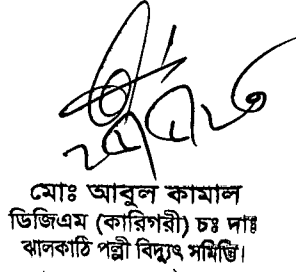 মোঃ আবুল কামাল
ডিজিএম (কারিগরী) চঃ দাঃ
ঝালকাঠি পল্লী বিদ্যুৎ সমিতি।